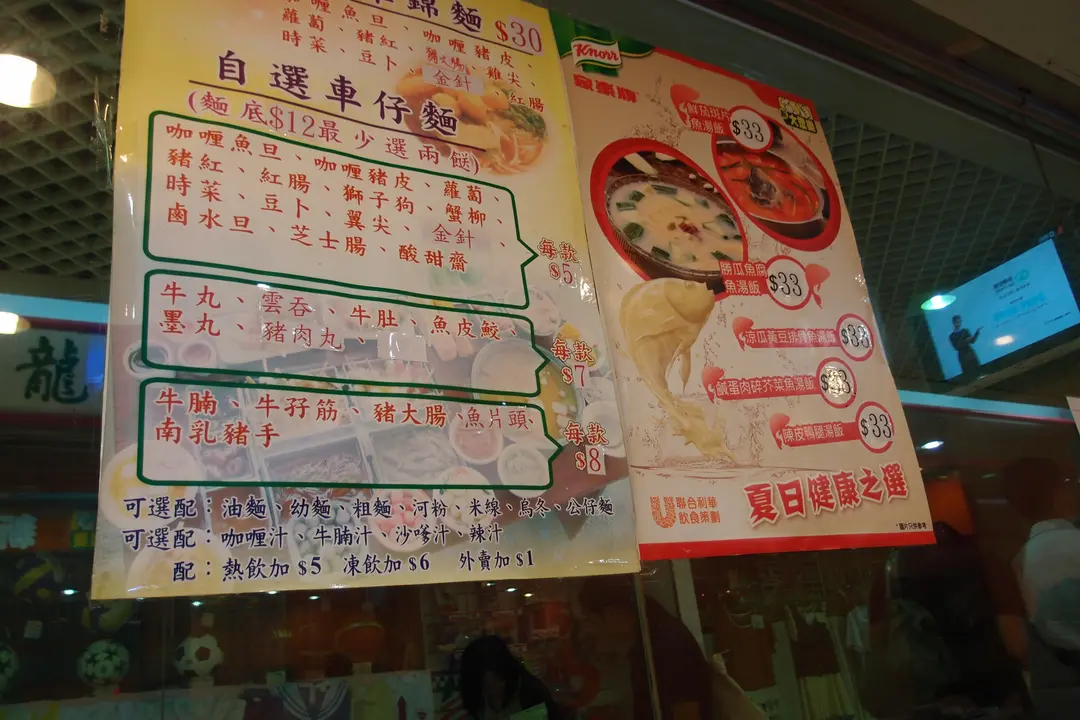 錦麵 $30
咖喱魚旦、咖喱豬皮、
蘿蔔、豬紅、雞尖、
時菜、豆卜、金針、紅腸
自選車仔麵
(麵底$12最少選兩餸)
咖喱魚旦、咖喱豬皮、蘿蔔、
豬紅、紅腸、獅子狗、蟹柳、
時菜、豆卜、翼尖、金針、
鹵水旦、芝士腸、酸甜齋
每款
$5
牛丸、雲吞、牛肚、魚皮餃、
墨丸、豬肉丸、
每款
$7
牛腩、牛孖筋、豬大腸、魚片頭、
南乳豬手
每款
$8
可選配：油麵、幼麵、粗麵、河粉、米線、烏冬、公仔麵
可選配：咖喱汁、牛腩汁、沙嗲汁、辣汁
配：熱飲加$5 凍飲加$6 外賣加$1
Knorr
家樂牌
鮮茄斑片
魚湯飯
$33
勝瓜魚腐
魚湯飯
$33
涼瓜黃豆排骨魚湯飯
$33
鹹蛋肉碎芥菜魚湯飯
$33
陳皮鴨腿湯飯
$33
聯合利華
飲食策劃
夏日健康之選
*圖片只供參考
龍